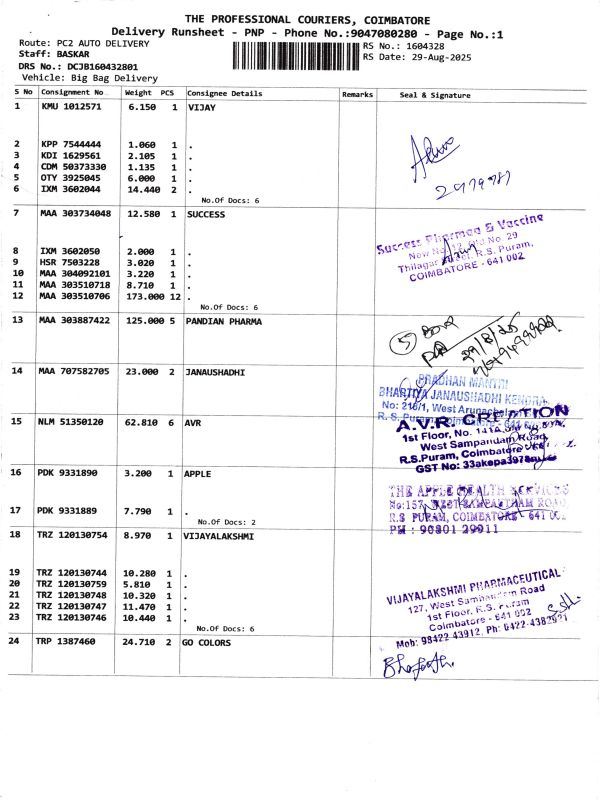 THE PROFESSIONAL COURIERS, COIMBATORE
Delivery Runsheet - PNP - Phone No.:9047080280 - Page No.:1
Route: PC2 AUTO DELIVERY
Staff: BASKAR
DRS No.: DCJB160432801
Vehicle: Big Bag Delivery
RS No.: 1604328
RS Date: 29-Aug-2025
S No Consignment No Weight PCS Consignee Details Remarks Seal & Signature
1 KMU 1012571 6.150 1 VIJAY
2 KPP 7544444 1.060 1 .
3 KDI 1629561 2.105 1 .
4 CDM 50373330 1.135 1 .
5 OTY 3925045 6.000 1 .
6 IXM 3602044 14.440 2 .
No.Of Docs: 6
7 MAA 303734048 12.580 1 SUCCESS
Success Pharmea & Vaccine
New No. 12, Old No. 29
Thilagar Street, R.S. Puram,
COIMBATORE - 641 002
8 IXM 3602050 2.000 1 .
9 HSR 7503228 3.020 1 .
10 MAA 304092101 3.220 1 .
11 MAA 303510718 8.710 1 .
12 MAA 303510706 173.000 12 .
No.Of Docs: 6
13 MAA 303887422 125.000 5 PANDIAN PHARMA
5 Box
29/8/25
14 MAA 707582705 23.000 2 JANAUSHADHI
PRADHAN MANTRI
BHARTIYA JANAUSHADHI KENDRA
No: 216/1, West
R. S. Puram,
15 NLM 51350120 62.810 6 AVR
A.V.R. CREATION
1st Floor, No. 141A,
West Sampandam Road
R.S.Puram, Coimbatore
GST No:
16 PDK 9331890 3.200 1 APPLE
THE APPLE HEALTH SERVICES
No:157, WEST SAMPANTHAM ROAD,
R.S PURAM, COIMBATORE - 641 002
PH : 90801 29911
17 PDK 9331889 7.790 1 .
No.Of Docs: 2
18 TRZ 120130754 8.970 1 VIJAYALAKSHMI
19 TRZ 120130744 10.280 1 .
20 TRZ 120130759 5.810 1 .
21 TRZ 120130748 10.320 1 .
22 TRZ 120130747 11.470 1 .
23 TRZ 120130746 10.440 1 .
No.Of Docs: 6
VIJAYALAKSHMI PHARMACEUTICAL
127, West Sambandam Road
1st Floor, R.S. Puram
Coimbatore - 641 002
Mob: 98422 43912, Ph: 0422-4382921
24 TRP 1387460 24.710 2 GO COLORS